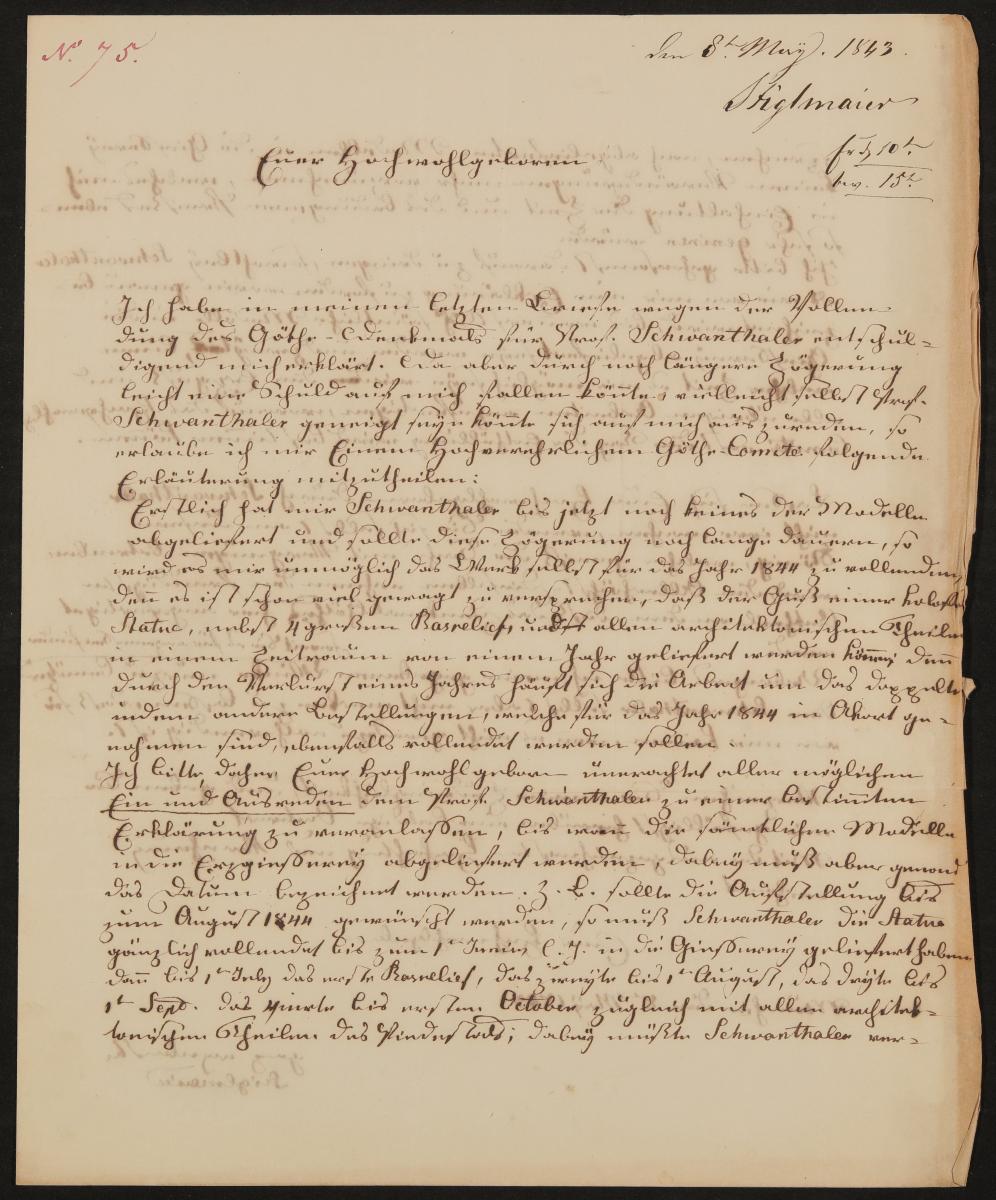 N. 75.
den 8t. May. 1843.
Stiglmaier
10t.
15t.
Euer Hochwohlgeboren
Ich habe in meinem letzten Briefe wegen der Vollen
dung des Göthe-Denkmals für Prof. Schwanthaler entschul=
digend mich erklärt. Da aber durch noch längere Zögerung
leicht eine Schuld auf mich fallen könnte, vielleicht selbst Prof.
Schwanthaler geneigt seyn könnte sich auf mich auszureden, so
erlaube ich mir Einem Hochverehrlichem Göthe-Comite folgende
Erläuterung mitzutheilen:
Erstlich hat mir Schwanthaler bis jetzt noch keines der Modelle
abgeliefert und sollte diese Zögerung noch lange dauern, so
wird es mir unmöglich das Werk selbst für das Jahr 1844 zu vollenden,
denn es ist schon viel gewagt zu versprechen, daß der Guß einer koloss
Statue, nebst 4 großen Basreliefs und allen architektonischen Theilen
in einem Zeitraum von einem Jahr geliefert werden können; denn
durch den Verlurst eines Jahres häuft sich die Arbeit um das doppelte
indem andere Bestellungen, welche für das Jahr 1844 in Akort ge=
nohmen sind, ebenfalls vollendet werden sollen.
Ich bitte daher Euer Hochwohlgeborn unerachtet aller möglichen
Ein und Ausreden dem Prof. Schwanthaler zu einer bestimmten
Erklärung zu veranlassen, bis wann die sämtlichen Modelle
in die Erzgiesserey abgeliefert werden, dabey muß aber genau
das Datum bezeichnet werden. z. B. sollte die Aufstellung bis
zum August 1844 gewünscht werden, so muß Schwanthaler die Statue
gänzlich vollendet bis zum 1t Juni l. J. in die Giesserey geliefert haben
dann bis 1t July das erste Basrelief, das zweyte bis 1t August, das dryte bis
1t Sept. das vierte bis ersten October zugleich mit allen architek=
tonischen Theilen des Piedestals; dabey müßte Schwanthaler ver=